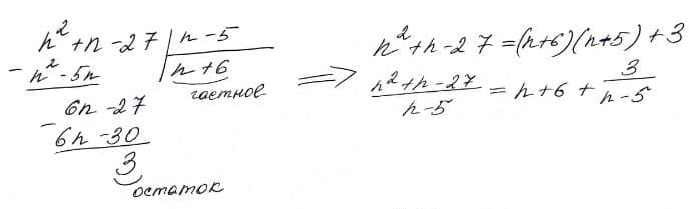 n²+n-27 | n-5
- n²-5n | n+6
частное
6n-27
- 6n-30
3
остаток
⟹ n²+n-27=(n+6)(n+5)+3
(n²+n-27)/(n-5) = n+6+3/(n-5)